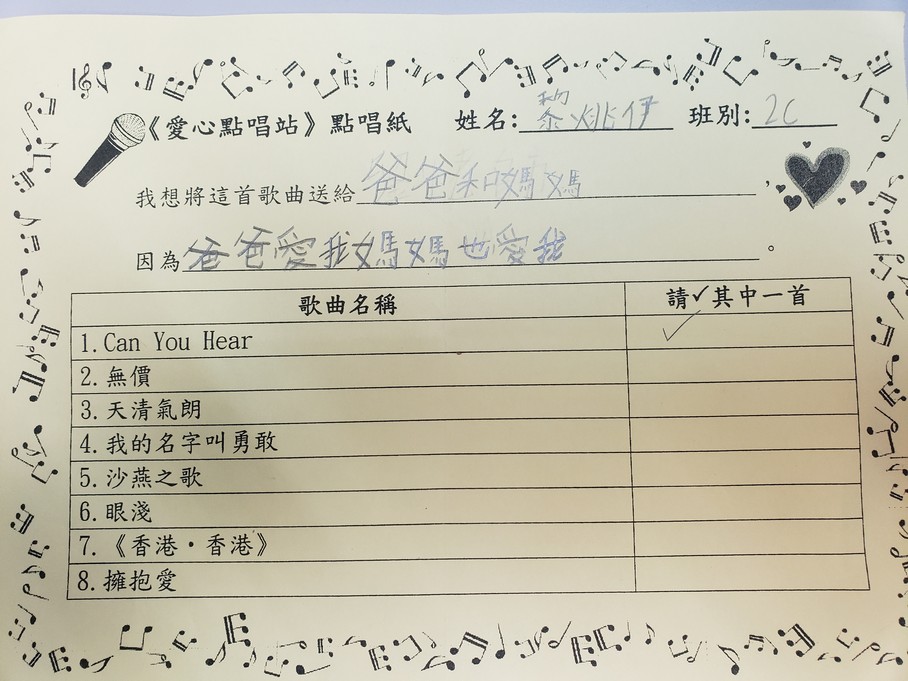 《愛心點唱站》點唱紙 姓名:黎姚伊 班別:2C
我想將這首歌曲送給爸爸和媽媽,
因為爸爸愛我媽媽也愛我。
歌曲名稱 請✓其中一首
1.Can You Hear ✓
2.無價
3.天清氣朗
4.我的名字叫勇敢
5.沙燕之歌
6.眼淺
7.《香港·香港》
8.擁抱愛